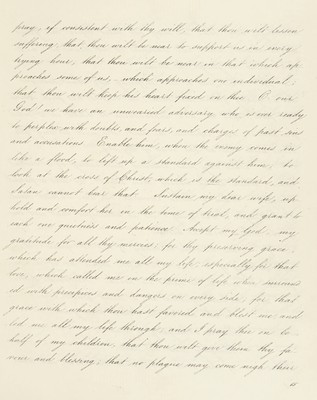 pray, if consistent with thy will, that thou wilt lessen
suffering that thou wilt be near to support us in every
trying hour, that thou wilt be near in that which ap
proaches some of us, which approaches one individual,
that thou wilt keep his heart fixed on thee O our
God! we have an unwearied adversary who is ever ready
to perplex with doubts, and fears, and charges of past sins
and accusations. Enable him, when the enemy comes in
like a flood, to lift up a standard against him, to
look at the cross of Christ, which is the standard, and
Satan cannot bear that Sustain my dear wife, up
hold and comfort her in the time of trial, and grant to
each one quietness and patience. Accept my God my
gratitude for all thy mercies, for thy preserving grace
which has attended me all my life, especially for that
love, which called me in the prime of life when surround
ed with precipices and dangers on every side, for that
grace with which thou hast favored and blest me and
led me all my life through, and I pray thee on be
half of my children, that thou wilt give them thy fa
vour and blessing, that no plague may come nigh their